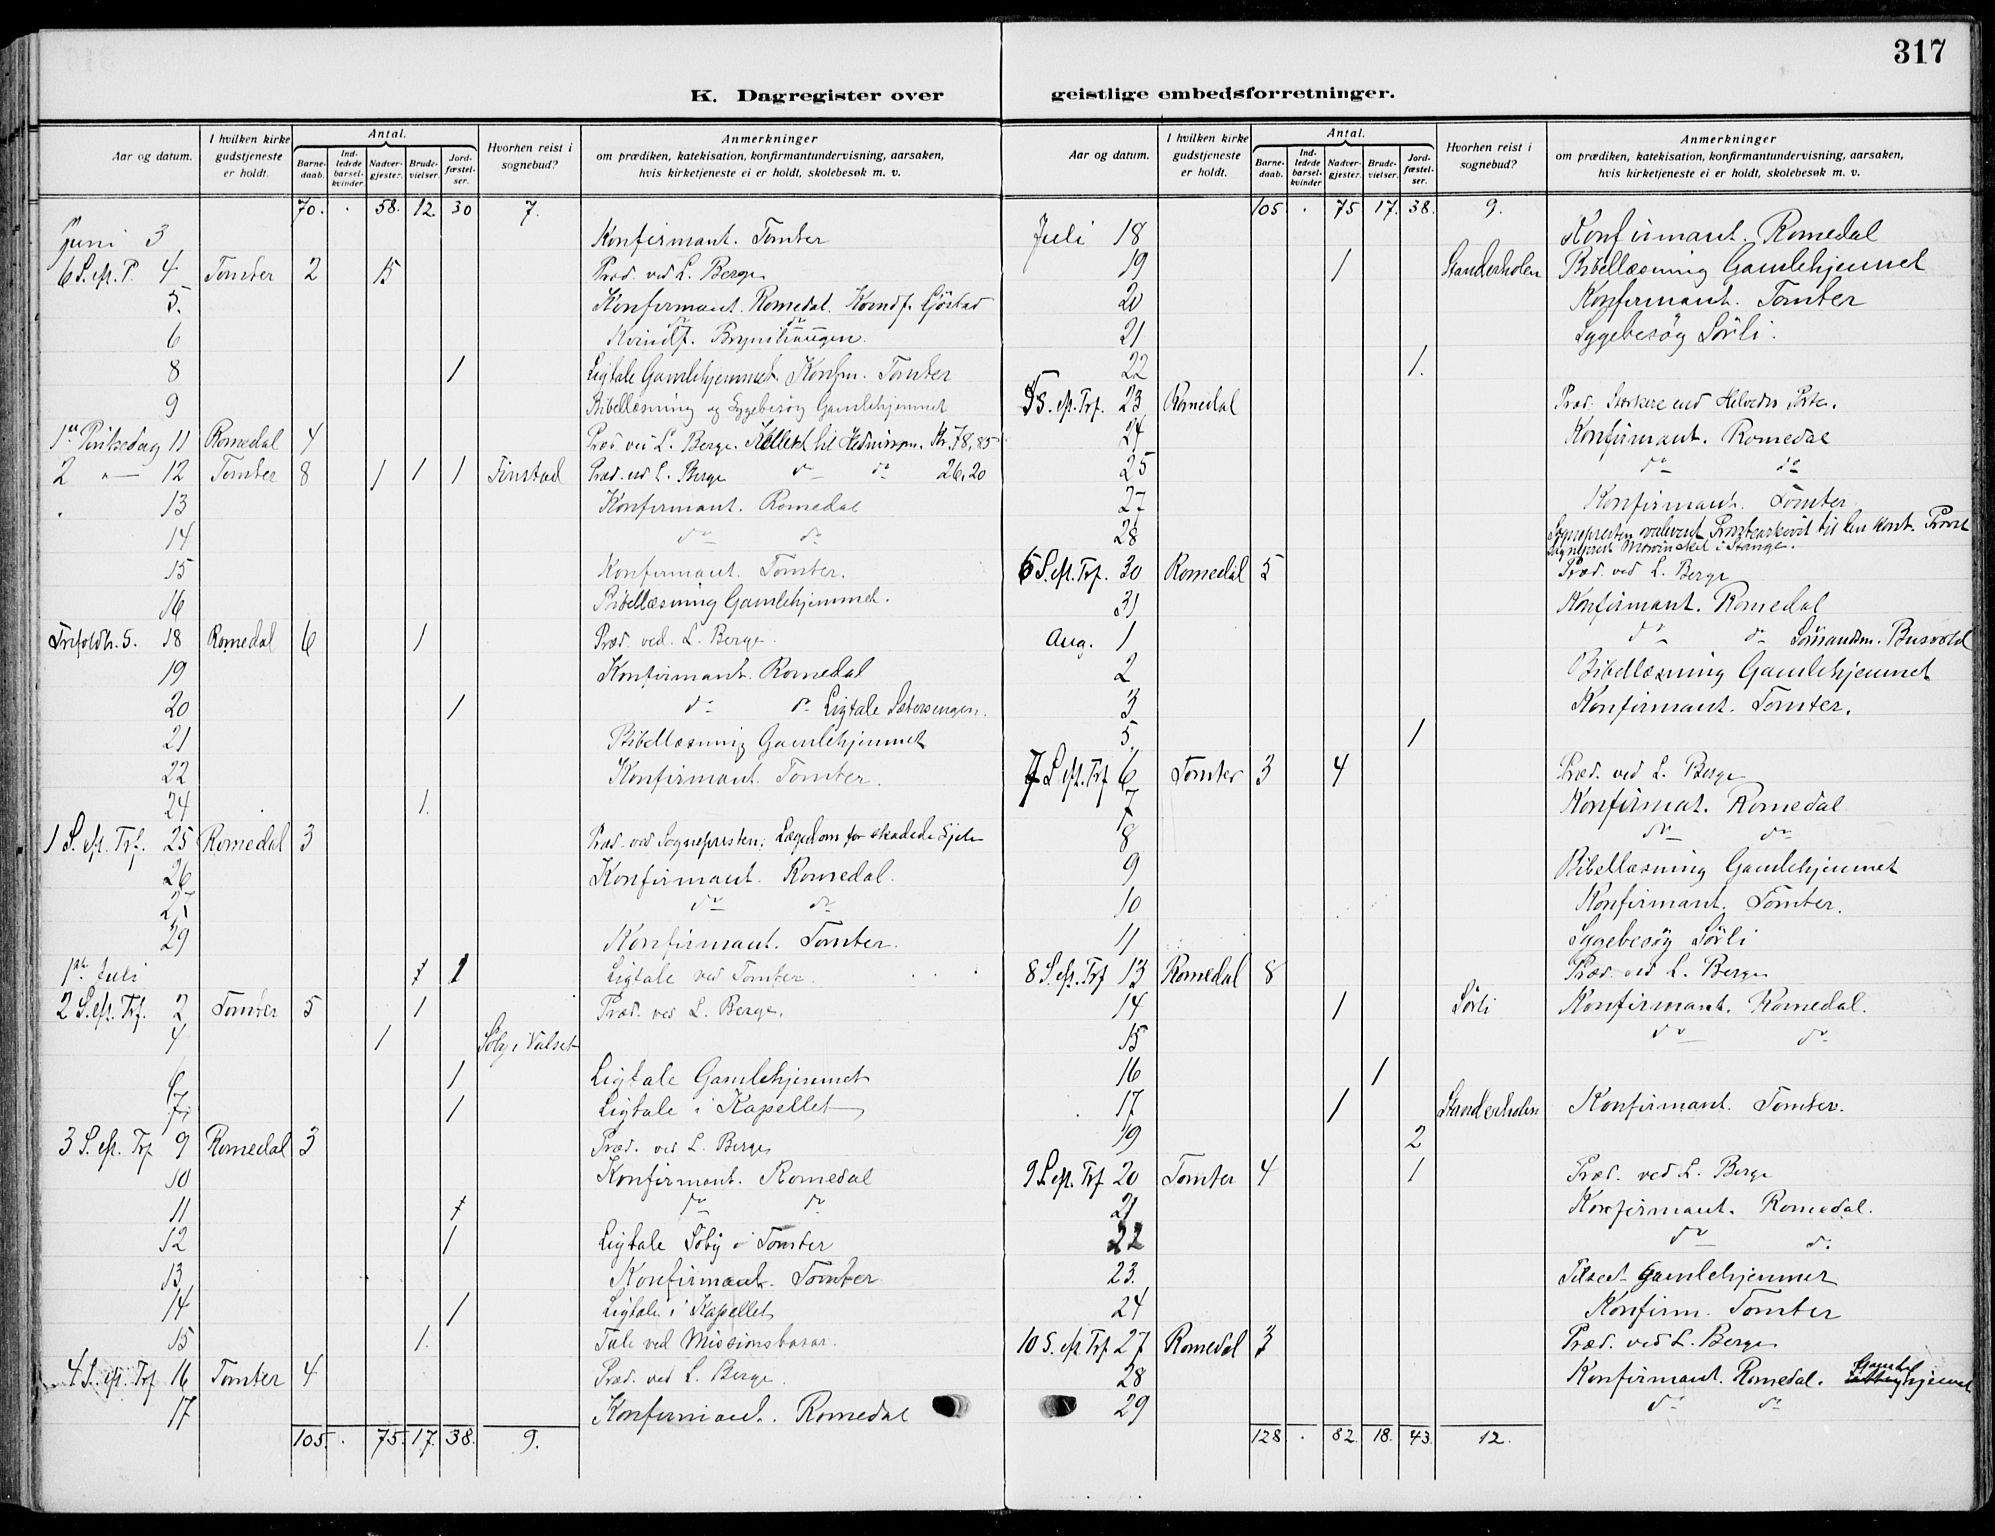 317
K. Dagregister over geistlige embedsforretninger.
Aar og datum. I hvilken kirke gudstjeneste er holdt. Antal. Barnedaab. Indledede barselkvinder. Nadvergjester. Brudevielser. Jordfæstelser. Hvorhen reist i sognebud? Anmerkninger om prædiken, katekisation, konfirmantundervisning, aarsaken, hvis kirketjeneste ei er holdt, skolebesøk m. v.
70. . 58. 12. 30 7.
Juni 3 Konfirmant. Tomter
6 S. eft. P. 4 Tomter 2 15 Præd. ved L. Berge
5. Konfirmant. Romedal. Kvindf.
6 Kvindf.
8 1 Ligtale Gamlehjemmet. Konfm. Tomter
9 Bibellæsning og Sygebesøg Gamlehjemmet
1ste Pinksedag 11 Romedal 4 Præd. ved L. Berge. Kollekt til Kr. 78,85
2 " — 12 Tomter 8 1 1 1 Finstad Præd. ved L. Berge do do 26,20
13 Konfirmant. Romedal
14 do do
15 Konfirmant. Tomter.
16 Bibellæsning Gamlehjemmet.
Trefoldh. S. 18 Romedal 6 1 Præd. ved. L. Berge.
19 Konfirmant. Romedal
20 1 do do Ligtale Sætersengen.
21 Bibellæsning Gamlehjemmet
22 Konfirmant. Tomter.
24 1.
1 S. eft. Trf. 25 Romedal 3 Præd. ved Sognepresten: Lægedom for skadede Sjele
26 Konfirmant. Romedal.
27 do do
29 Konfirmant. Tomter.
1ste Juli 1 1 Ligtale ved Tomter.
2 S. eft. Trf. 2 Tomter 5 1 Præd. ved L. Berge.
4 1 Søby i Valset
6 1 Ligtale Gamlehjemmet
7 1 Ligtale i Kapellet
3 S. eft. Trf 9 Romedal 3 Præd. ved L. Berge
10 Konfirmant. Romedal
11 do do
12 1 Ligtale Søby i Tomter
13 Konfirmant. Tomter
14 1 Ligtale i Kapellet
15 1. Tale ved Missionsbasar.
4 S. eft. Trf 16 Tomter 4 Præd. ved L. Berge
17 Konfirmant. Romedal
105. . 75. 17. 38. 9.
Aar og datum. I hvilken kirke gudstjeneste er holdt. Antal. Barnedaab. Indledede barselkvinder Nadvergjester. Brudevielser. Jordfæstelser. Hvorhen reist i sognebud? Anmerkninger om prædiken, katekisation, konfirmantundervisning, aarsaken, hvis kirketjeneste ei er holdt, skolebesøk m. v.
105 . 75 17. 38. 9.
Juli 18 Konfirmant. Romedal
19 1 Standerholen Bibellæsning Gamlehjemmet
20 Konfirmant. Tomter
21 Sygebesøg Sørli.
22 1.
5 S. eft. Trf. 23 Romedal Præd. Sterkere end Helvedes Porte.
24 Konfirmant. Romedal
25 do do
27 Konfirmant. Tomter
28 Sognepresten til den konst. Provst
Sogneprest i Stange.
6 S. eft. Trf. 30 Romedal 5 Præd. ved L. Berge
31 Konfirmant. Romedal
Aug. 1 do do Busvold
2 Bibellæsning Gamlehjemmet
3 Konfirmant. Tomter.
5. 1
7 S. eft. Trf 6 Tomter 3 4 Præd. ved L. Berge
7 Konfirmat. Romedal
8 do do
9 Bibellæsning Gamlehjemmet
10 Konfirmant. Tomter.
11 Sygebesøg Sørli
8 S. eft. Trf 13 Romedal 8 Præd. ved L. Berge
14 1 Sørli Konfirmant. Romedal.
15 do do
16 1
17 1 Standerholen Konfirmant. Tomter.
19 2
9 S. eft. Trf 20 Tomter 4 1 Præd. ved L. Berge
21 Konfirmant. Romedal.
22 do do
23. Gamlehjemmet
24 Konfirm. Tomter
10 S. eft Trf 27 Romedal 3 Præd. ved L. Berge
28 Konfirmant. Romedal. Gamlehjemmet
29 do do
128 . 82. 18. 43. 12.